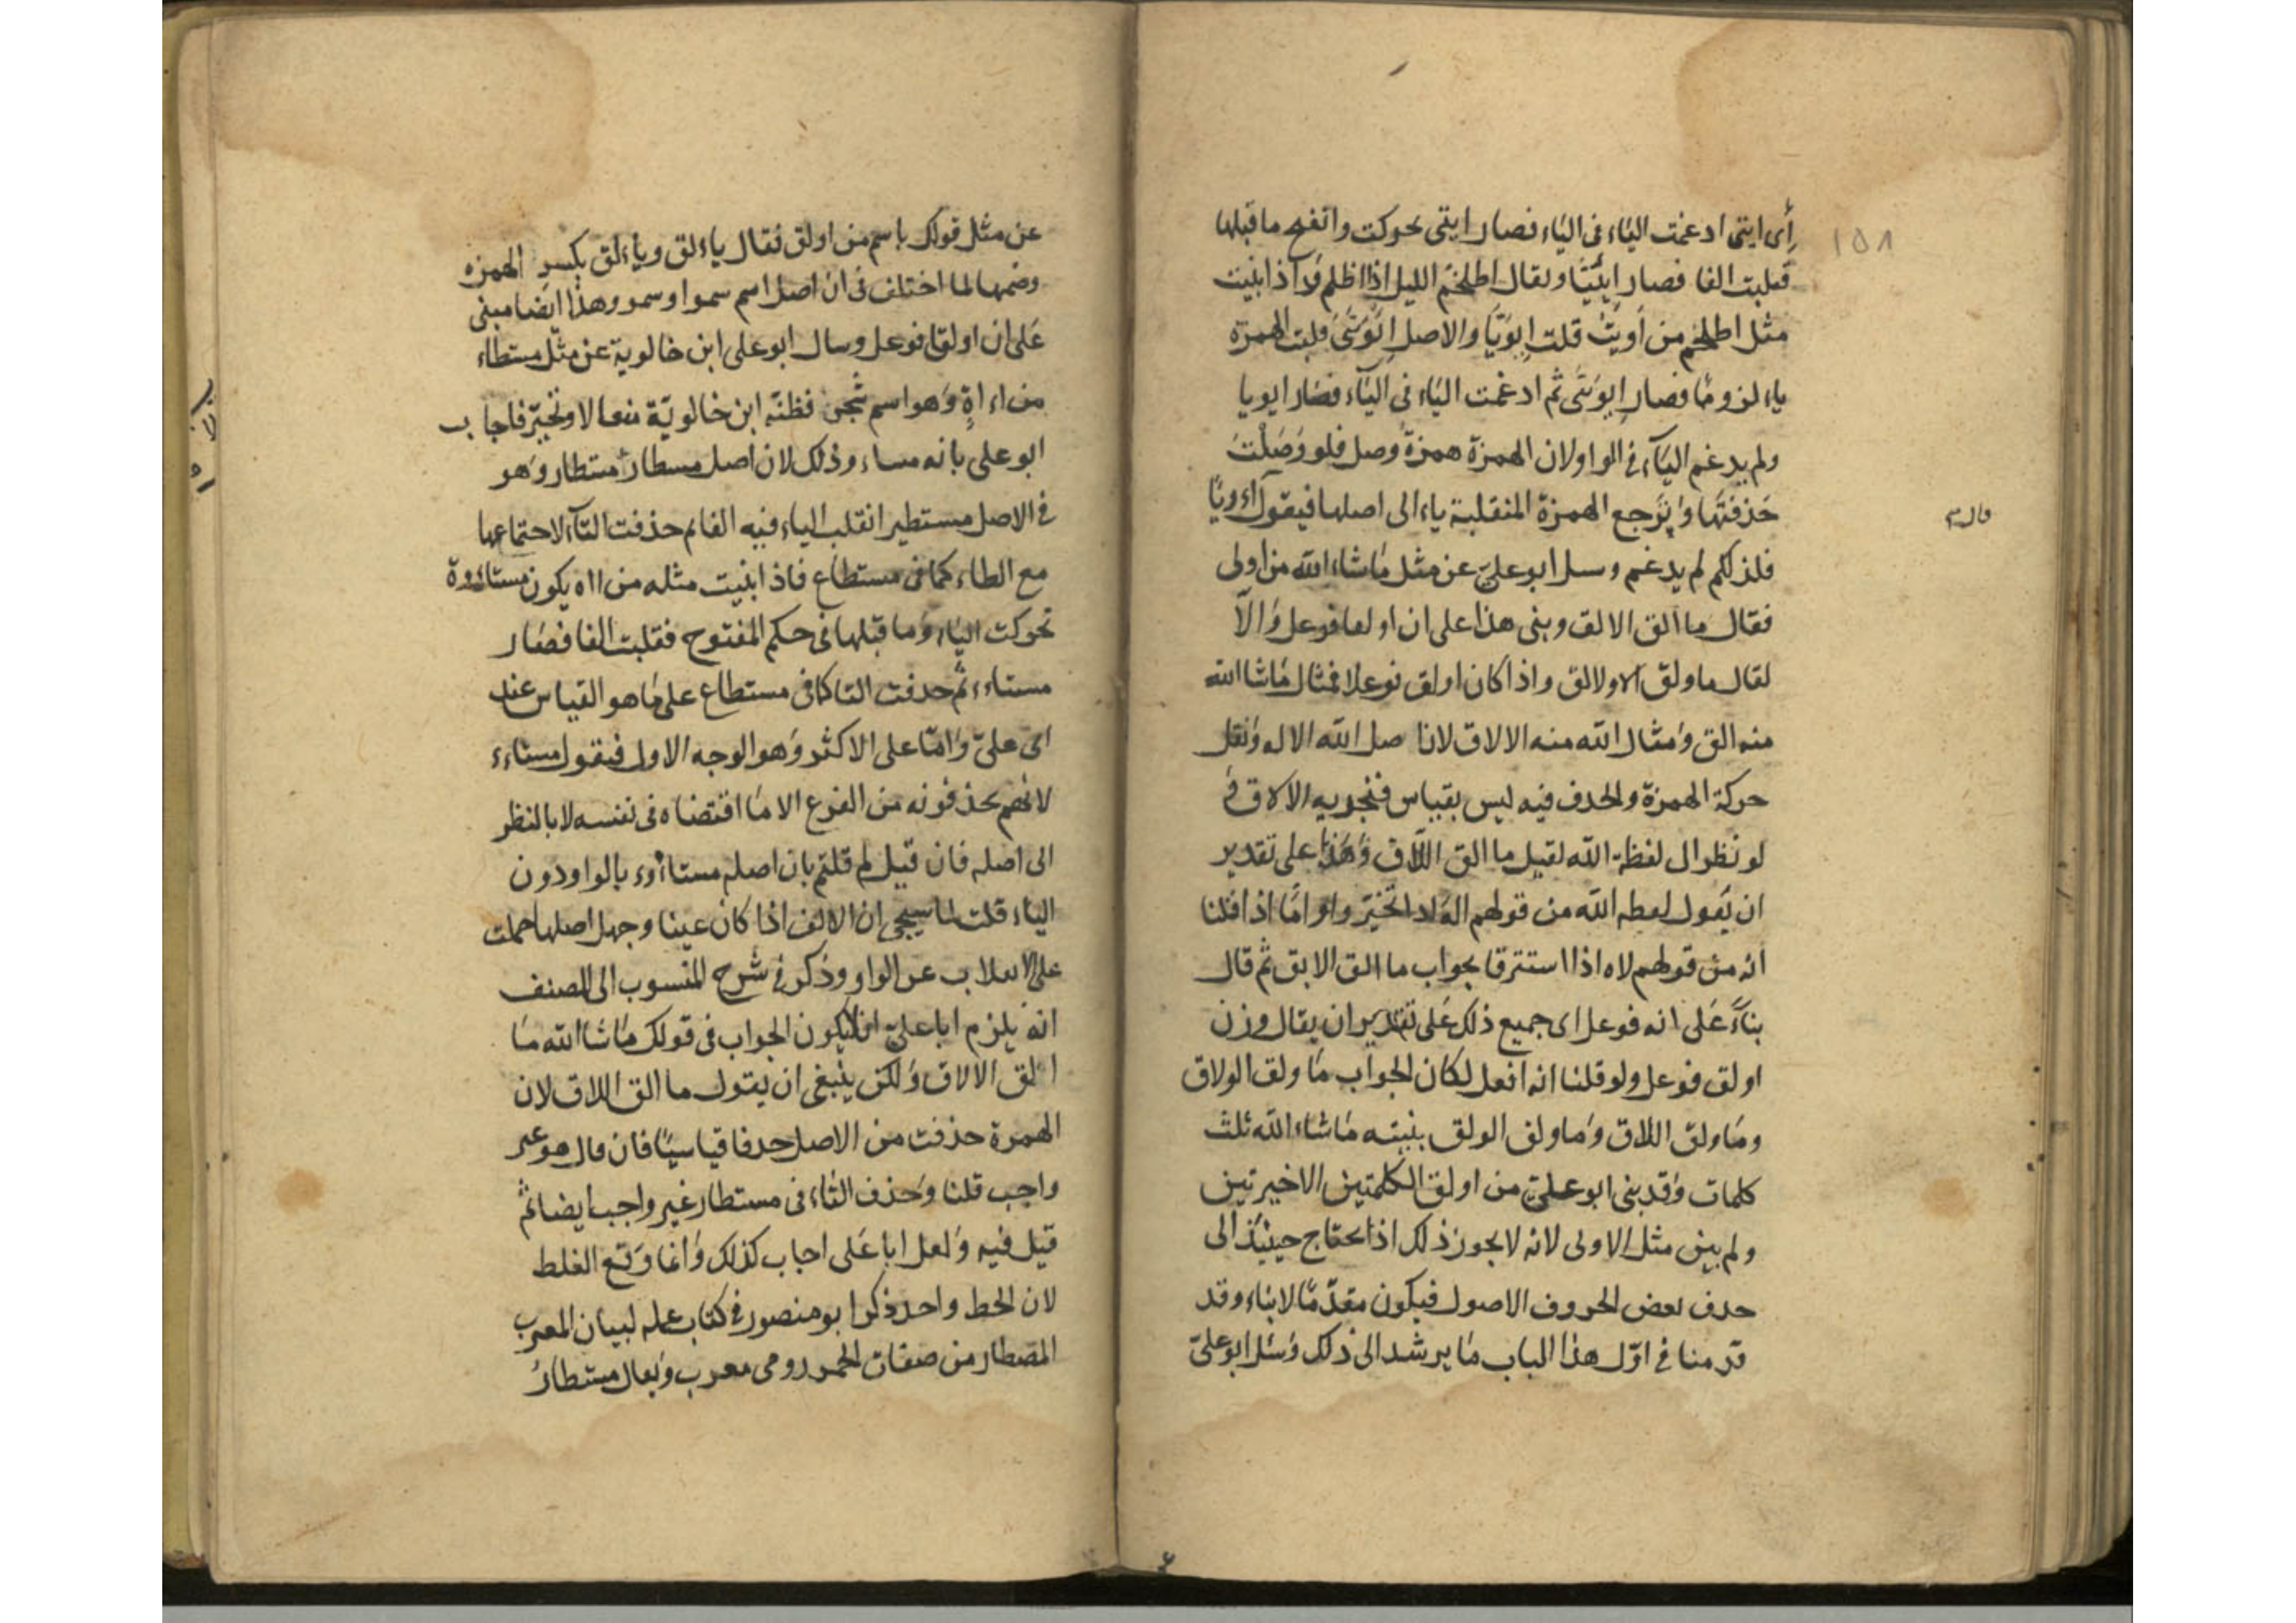 ١٥٨
أى ايتى ادغمت الياء فى الياء فصار ايتى تحركت وانفتح ماقبلها
قلبت الفا فصار ايئيّا ويقال اطلخم الليل اذا اظلم واذا بنيت
مثل اطلخم من أويت قلت ايويّا والاصل قلبت الهمزة
ياء لزوما فصار ثم ادغمت الياء فى الياء فصار ايويا
ولم يدغم الياء فى الواو لان الهمزة همزة وصل فلو وصلت
حذفتها وترجع الهمزة المنقلبة ياء الى اصلها فيقول
فلذلكم لم يدغم وسل ابو علىّ عن مثل ماشاء الله من اولى
فقال ما ألق الالق وبنى هذا على ان فوعل والّا
لقال ما ولق الاولالق واذا كان اولق فوعلا فمثال ماشا الله
منه الق ومثال الله منه الالاق لان اصل الله الاله ونقل
حركة الهمزة والحدف فيه ليس بقياس الالاق
لو نظر الى لفظة الله لقيل ما الق اللّاق وهذا على تقدير
ان يقول لفظه الله من قولهم اله اذا تحيّر وامّا اذا قلنا
انه من قولهم لاه اذا استتر بجواب ما الق ثم قال
بناءً على انه فوعل اى جميع ذلك على تقدير ان يقال وزن
اولق فوعل ولو قلنا انه افعل لكان الجواب ما ولق الولاق
وما ولق اللاق وما ولق الولق بنيته ماشاء الله ثلث
كلمات وقد بنى ابو علىّ من اولق الكلمتين الاخيرتين
ولم يبن مثل الاولى لانه لا يجوز ذلك اذ يحتاج حينئذ الى
حدف بعض الحروف الاصول فيكون مقدّما وقد
قدمنا فى اوّل هذا الباب ما يرشد الى ذلك وسئل ابو علىّ
عن مثل قولك باسم من اولق فقال ياءلق ويأءلق بكسر الهمزه
وضمها لما اختلف فى ان اصل اسم سموا وسمو وهذا ايضا مبنى
على ان اولقا فوعل وسال ابو على ابن خالوية عن مثل مستطاء
من اءاة وهو اسم شجر فظنّه ابن خالويّة وتحيّر فاجاب
ابو على بانه مساء وذلك لان اصل مسطار مستطار وهو
فى الاصل مستطير انقلب الياء فيه الفا ثم حذفت التاء لاجتماعها
مع الطاء كما فى مستطاع فاذا بنيت مثله من ااه يكون
تحركت الياء وما قبلها فى حكم المفتوح فقلبت الفا فصار
مستاء ثم حدفت التا كما فى مستطاع على ما هو القياس عند
ابى علىّ وامّا على الاكثر وهو الوجه الاول فيقول مستاء
لانهم يحذفونه من الفرع الا ما اقتضاه فى نفسه لا بالنظر
الى اصله فان قيل لم قلتم بان اصله بالواو دون
الياء قلت لما سيجى ان الالف اذا كان عينا وجهل اصلها حملت
على الانقلاب عن الواو وذكر فى شرح المنسوب الى المصنف
انه يلزم ابا علىّ ان لا يكون الجواب فى قولك ماشا الله ما
الق الالاق ولكن ينبغى ان يقول ما الق اللاق لان
الهمزة حذفت من الاصل حدفا قياسيّا فان قال هو غير
واجب قلنا وحذف التاء فى مستطار غير واجب ايضا ثم
قيل فيه ولعل ابا على اجاب كذلك وانما وقع الغلط
لان الخط واحد ذكر ابو منصور فى كتاب عمله لبيان المعرب
المصطار من صفات الخمر رومى معرب ويقال مستطار